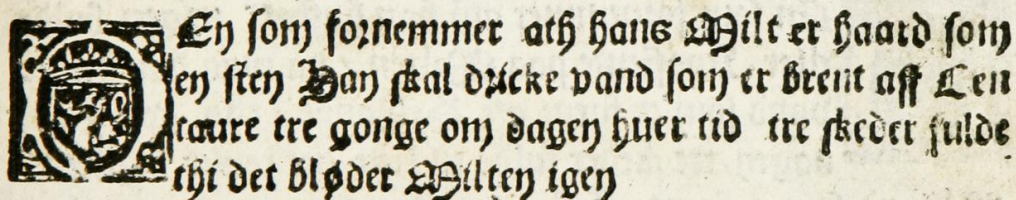 DEn som fornemmer ath hans Milt er haard som
en sten Han skal dricke vand som er brent aff Cen
taure tre gonge om dagen huer tid tre skeder fulde
thi det bløder Milten igen